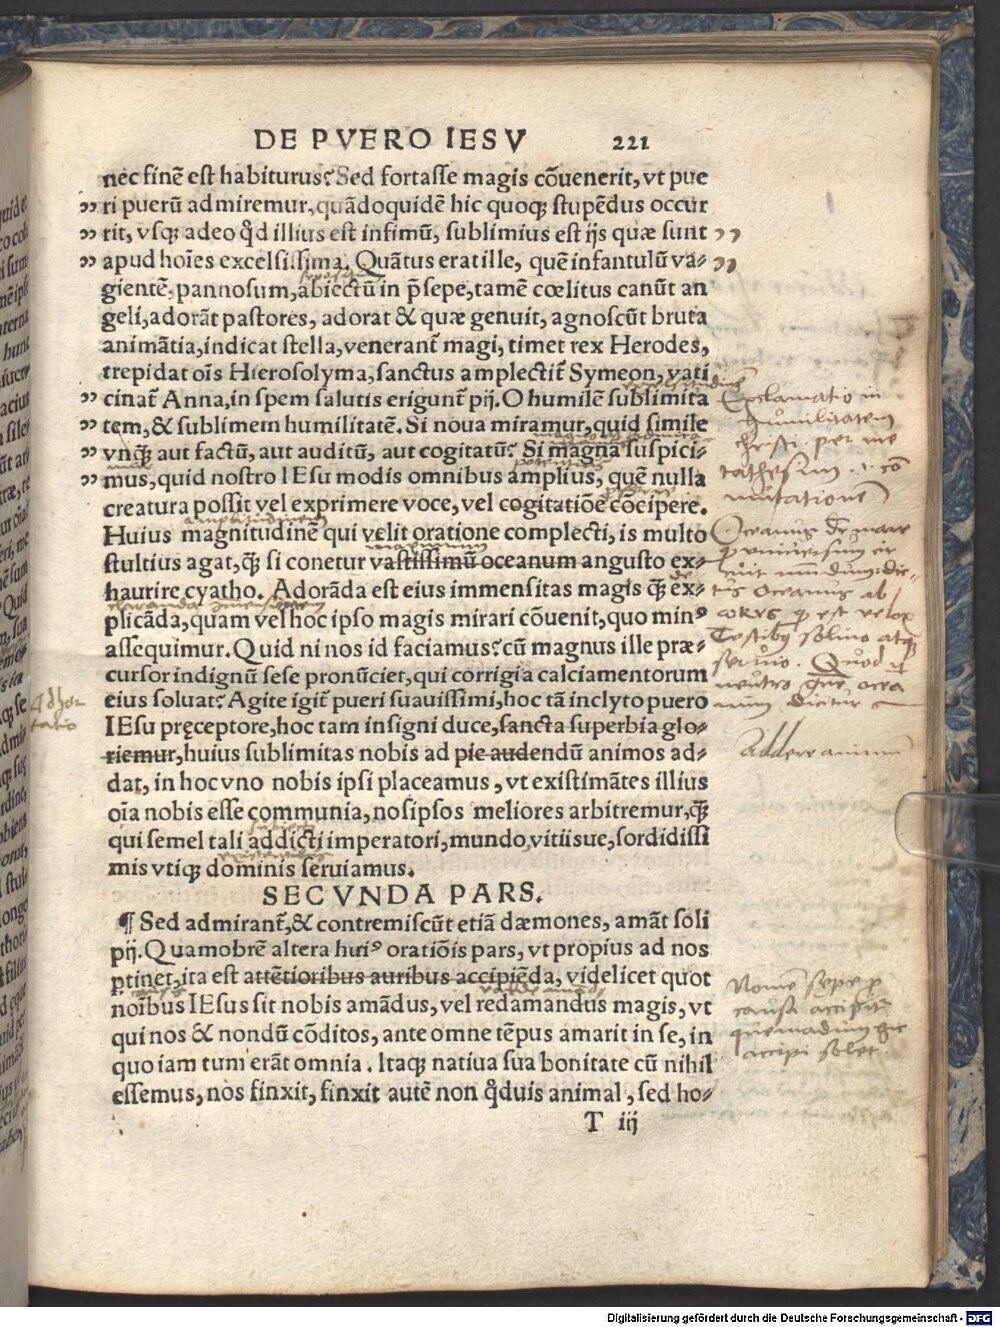 DE PVERO IESV 221
nec finē est habiturus? Sed fortasse magis cōuenerit, vt pue
„ ri puerū admiremur, quādoquidē hic quoqꝫ stupēdus occur
„ rit, vsqꝫ adeo qd̄ illius est infimū, sublimius est ijs quæ sunt „
„ apud hoīes excelsissima. Quātus erat ille, quē infantulū va⸗ „
gientē, pannosum, abiectū in p̄sepe, tamē cœlitus canūt an
geli, adorāt pastores, adorat & quæ genuit, agnoscūt bruta
animātia, indicat stella, venerant᷑ magi, timet rex Herodes,
trepidat oīs Hierosolyma, sanctus amplectit᷑ Symeon, vati
„ cinat᷑ Anna, in spem salutis erigunt᷑ pij. O humilē sublimita
„ tem, & sublimem humilitatē. Si noua miramur, quid simile
„ vnqꝫ aut factū, aut auditū, aut cogitatū? Si magna suspici⸗
„ mus, quid nostro IEsu modis omnibus amplius, quē nulla
creatura possit vel exprimere voce, vel cogitatiōe cōcipere.
Huius magnitudinē qui velit oratione complecti, is multo
stultius agat, qꝫ̄ si conetur vastissimū oceanum angusto ex⸗
haurire cyatho. Adorāda est eius immensitas magis qꝫ̄ ex⸗
plicāda, quam vel hoc ipso magis mirari cōuenit, quo minꝰ
assequimur. Quid ni nos id faciamus? cū magnus ille præ⸗
cursor indignū sese pronūciet, qui corrigia calciamentorum
eius soluat? Agite igit᷑ pueri suauissimi, hoc tā inclyto puero
IEsu pręceptore, hoc tam insigni duce, sancta superbia glo⸗
riemur, huius sublimitas nobis ad pie audendū animos ad⸗
dat, in hoc vno nobis ipsi placeamus, vt existimātes illius
oīa nobis esse communia, nosipsos meliores arbitremur, qꝫ̄
qui semel tali addicti imperatori, mundo, vitiisue, sordidissi
mis vtiqꝫ dominis seruiamus.
SECVNDA PARS.
¶ Sed admirant᷑, & contremiscūt etiā dæmones, amāt soli
pij. Quamobrē altera huiꝰ oratiōis pars, vt propius ad nos
ptinet, ita est attētioribus auribus accipiēda, videlicet quot
noībus IEsus sit nobis amādus, vel redamandus magis, vt
qui nos & nondū cōditos, ante omne tēpus amarit in se, in
quo iam tum erāt omnia. Itaqꝫ natiua sua bonitate cū nihil
essemus, nos finxit, finxit autē non qd̄uis animal, sed ho⸗
T iij
Exclamatio in
humilitatem
christi per me
tathesim .i. trās
mutationē
Oceanus
ab
est velox
Testibus solino atqꝫ
seruio. Quod
neutro genere ocea
num dicitur
Adhor
tatio
Addere animum
Nomē sepe p
causa accipit᷑
quemadmodum
accipi solet